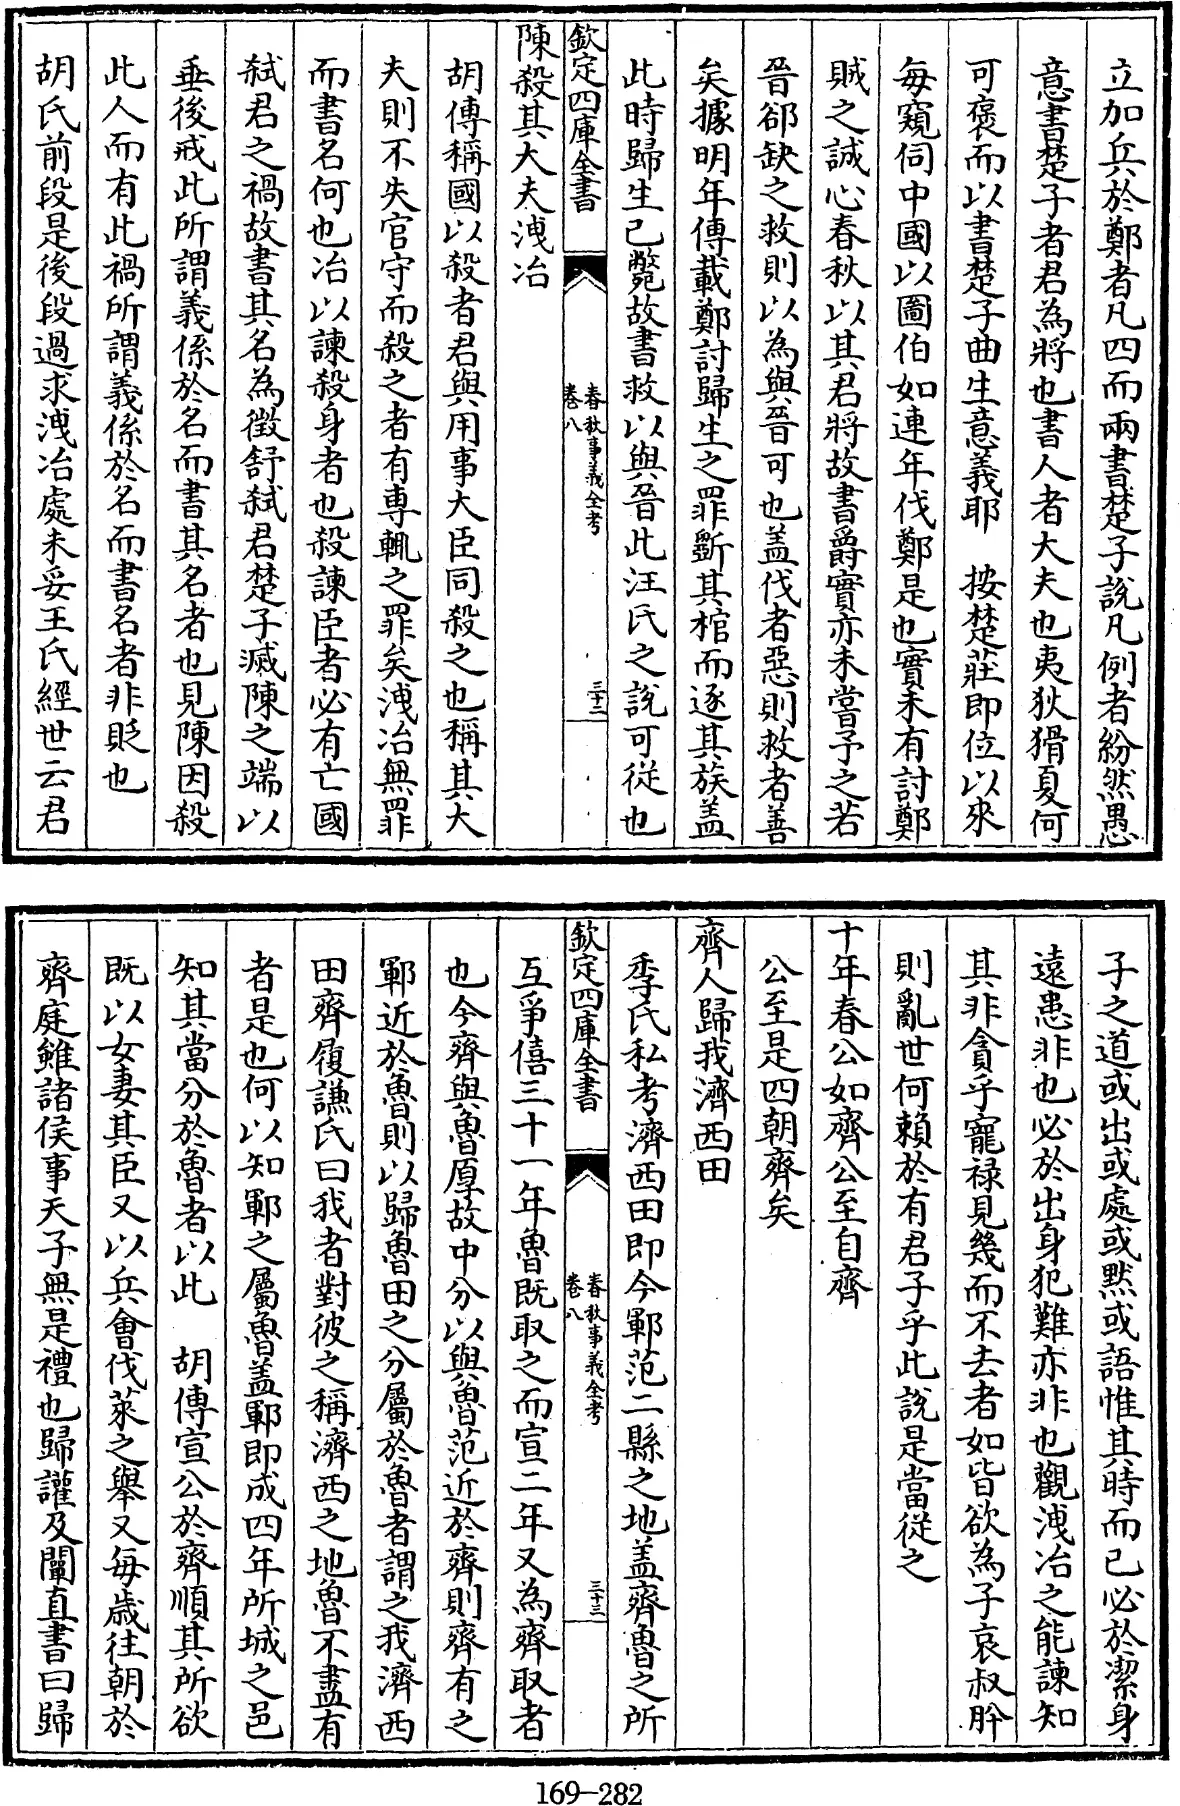 立加兵於鄭者凡四而兩書楚子說凡例者紛然愚
意書楚子者君為將也書人者大夫也夷狄猾夏何
可褒而以書楚子曲生意義耶　按楚莊即位以來
每窺伺中國以圖伯如連年伐鄭是也實未有討鄭
賊之誠心春秋以其君將故書爵實亦未嘗予之若
晉郤缺之救則以為與晉可也盖伐者惡則救者善
矣據明年傳載鄭討歸生之罪斵其棺而逐其族盖
此時歸生已斃故書救以與晉此汪氏之說可從也
欽定四庫全書
春秋事義全考
卷八
三十二
陳殺其大夫洩冶
胡傳稱國以殺者君與用事大臣同殺之也稱其大
夫則不失官守而殺之者有專輒之罪矣洩冶無罪
而書名何也冶以諫殺身者也殺諫臣者必有亡國
弑君之禍故書其名為徵舒弑君楚子滅陳之端以
垂後戒此所謂義係於名而書其名者也見陳因殺
此人而有此禍所謂義係於名而書名者非貶也
胡氏前段是後段過求洩冶處未妥王氏經世云君
子之道或出或處或黙或語惟其時而已必於潔身
遠患非也必於出身犯難亦非也觀洩冶之能諫知
其非貪乎寵祿見幾而不去者如皆欲為子哀叔肸
則亂世何賴於有君子乎此說是當從之
十年春公如齊公至自齊
公至是四朝齊矣
齊人歸我濟西田
季氏私考濟西田即今鄆范二縣之地盖齊魯之所
欽定四庫全書
春秋事義全考
卷八
三十三
互爭僖三十一年魯既取之而宣二年又為齊取者
也今齊與魯厚故中分以與魯范近於齊則齊有之
鄆近於魯則以歸魯田之分屬於魯者謂之我濟西
田齊履謙氏曰我者對彼之稱濟西之地魯不盡有
者是也何以知鄆之屬魯盖鄆即成四年所城之邑
知其當分於魯者以此　胡傳宣公於齊順其所欲
既以女妻其臣又以兵會伐萊之舉又每歲往朝於
齊庭雖諸侯事天子無是禮也歸讙及闡直書曰歸
169-282